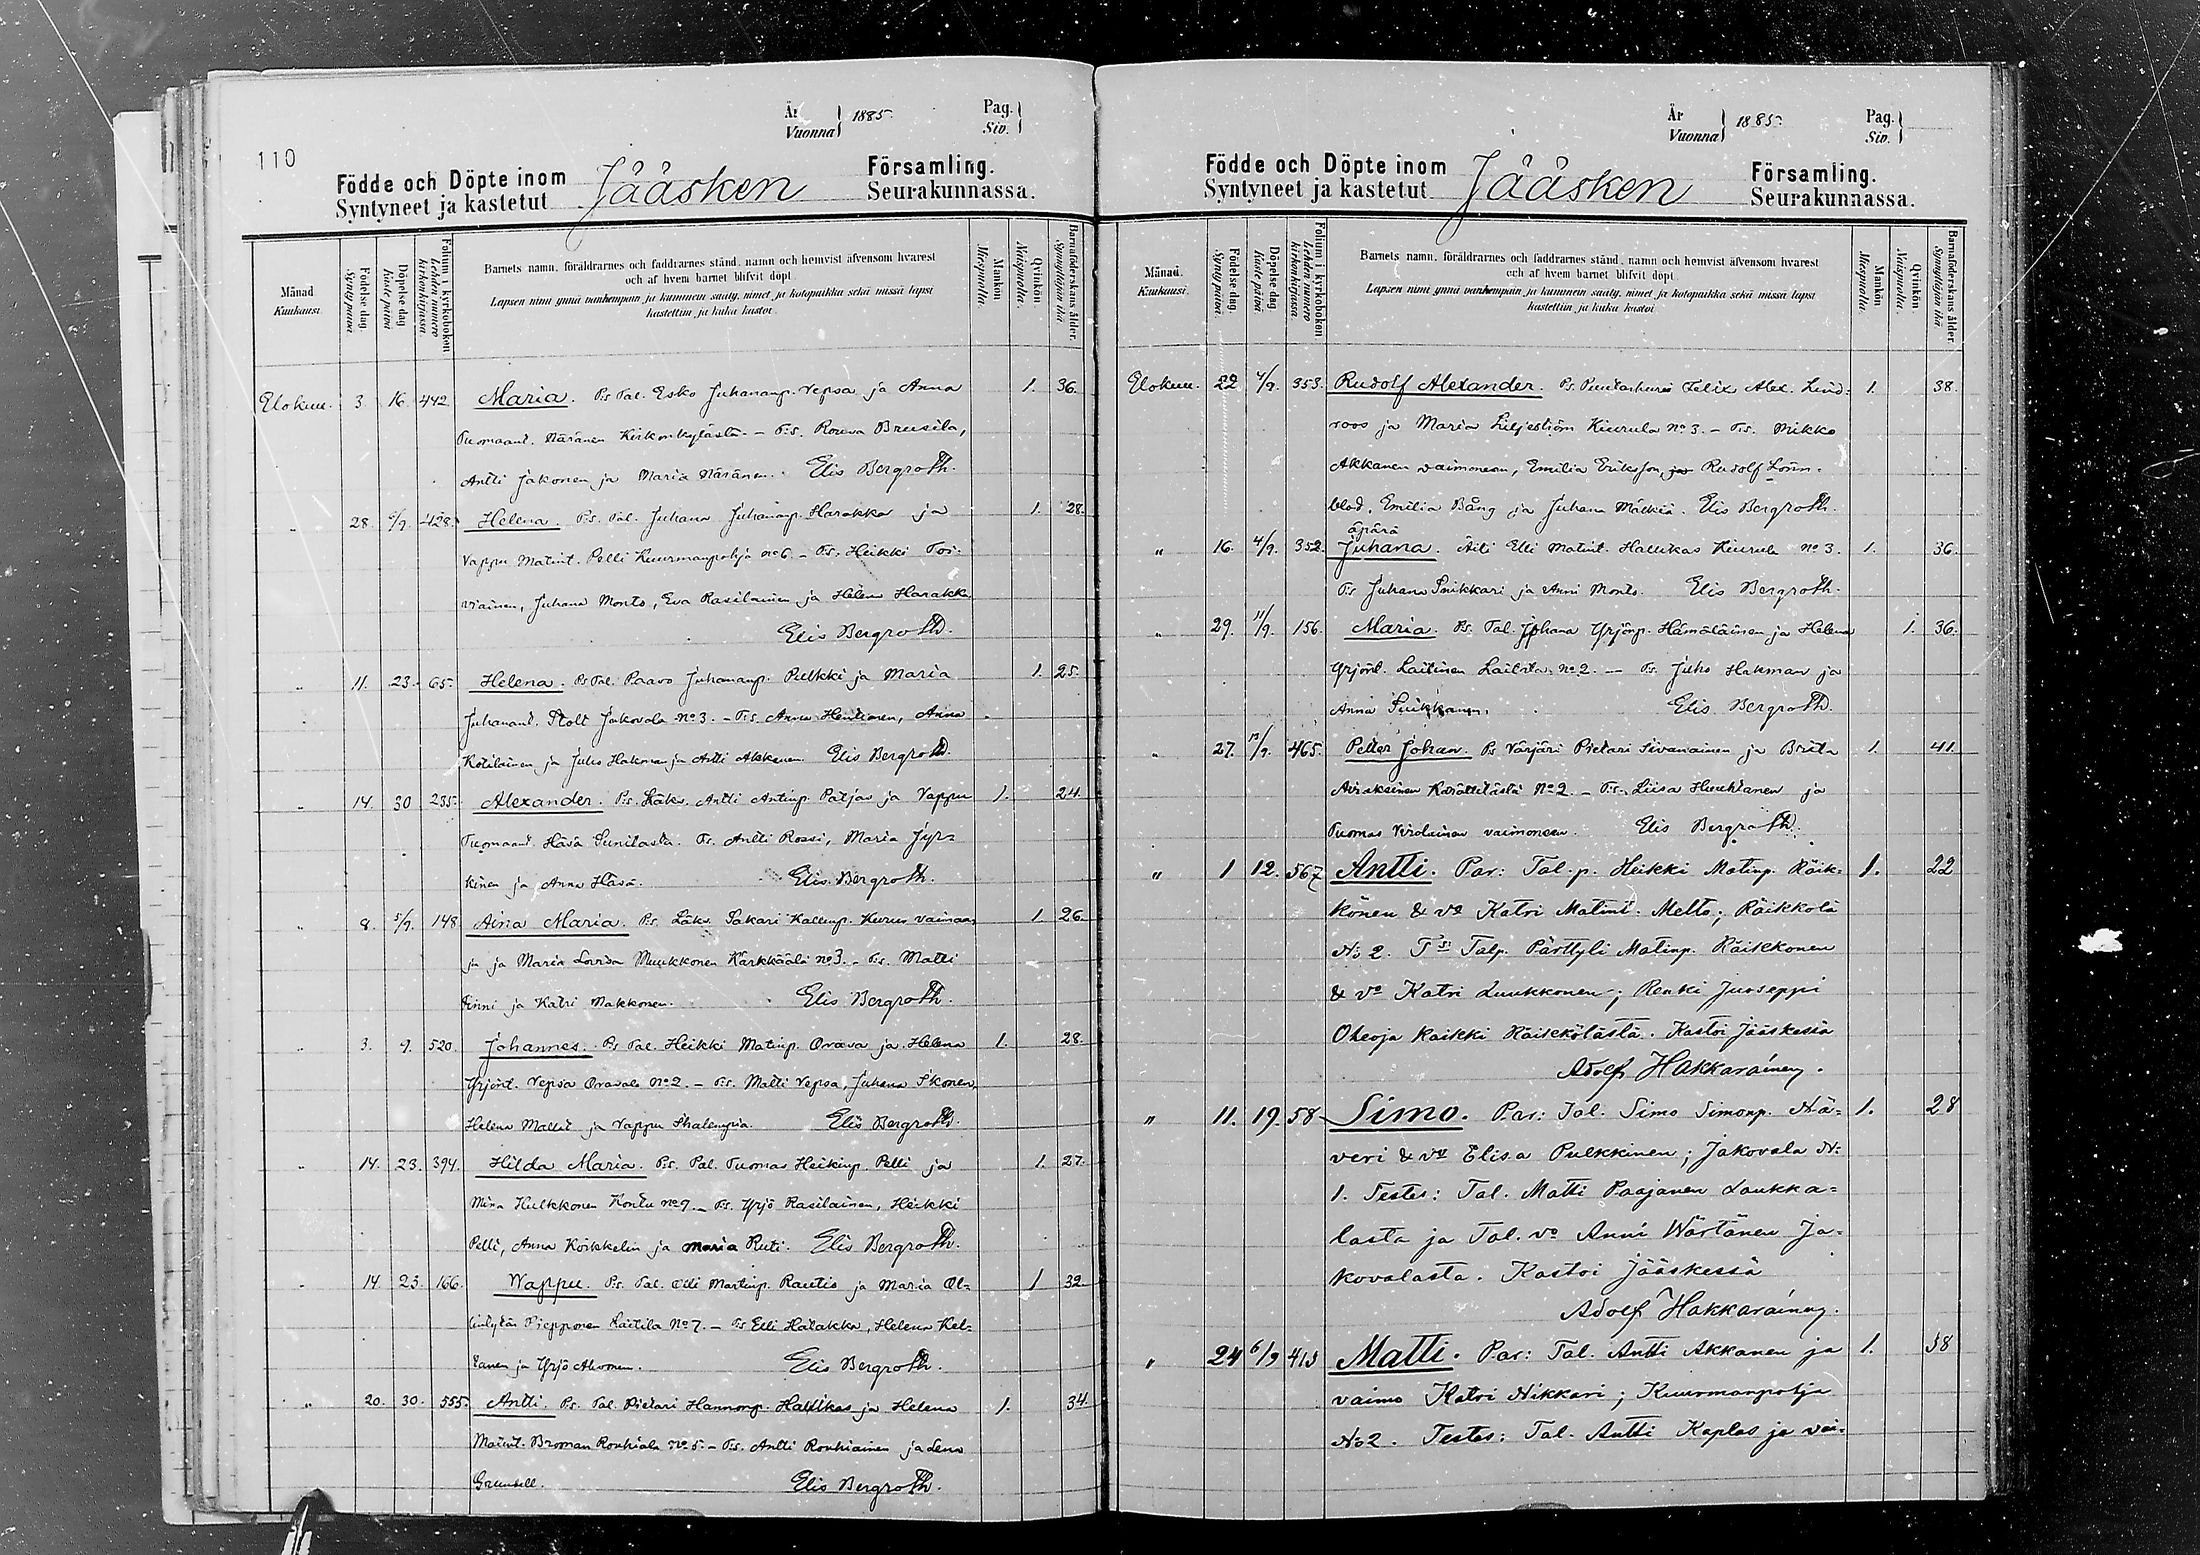 110
År Vuonna } 1885. Pag. Siv. }
Födde och Döpte inom Jääsken Församling.
Syntyneet ja kastetut Seurakunnassa.
Månad. Kuukausi.
Födelse dag. Syntypäivä.
Döpelse dag Kaste päivä
Folium i kyrkoboken Lehden numero kirkonkirjassa.
Barnets namn, föräldrarnes och faddrarnes stånd, namn och hemvist äfvensom hvarest
och af hvem barnet blifvit döpt.
Lapsen nimi ynnä vanhempain ja kummein sääty, nimet ja kotopaikka sekä missä lapsi
kastettiin ja kuka kastoi.
Mankön Miespuolta.
Qvinkön. Naispuolta.
Barnaföderskans ålder. Synnyttäjän ikä
Elokuu. 3. 16. 442. Maria. P:s Tal. Esko Juhananp. Vepsa ja Anna 1. 36.
Tuomaant. Näränen Kirkonkylästä. – T:s. Rouva Brusila,
Antti Jakonen ja Maria Näränen. Elis Bergroth.
" 28. 6/9. 428. Helena. P:s. Tal. Juhana Juhananp. Harakka ja 1. 28.
Vappu Matint. Pelli Kuurmanpohja no 6. – T:s. Heikki Toi-
viainen, Juhana Monto, Eva Rasilainen ja Helena Harakka
Elis Bergroth.
" 11. 23. 65. Helena. P:s Tal. Paavo Juhananp. Pulkki ja Maria 1. 25.
Juhanant. Stolt Jakovala No 3. – T:s. Anna Hentinen, Anna
Kotilainen ja Juho Hakman ja Antti Akkanen. Elis Bergroth.
" 14. 30 235. Alexander. P:s. Läks. Antti Antinp. Patja ja Vappu 1. 24.
Tuomaant. Häsä Sunilasta. T:s. Antti Rossi, Maria Jyr-
kinen ja Anna Häsä. Elis Bergroth.
" 8. 5/9. 148 Aina Maria. P:s. Läks. Sakari Kallenp. Kurus vaina- 1 26.
ja ja Maria Lovisa Muukkonen Kärkkäälä no 3. – T:s. Matti
Hinni ja Katri Makkonen. Elis Bergroth.
" 3. 9. 520. Johannes. P:s Tal. Heikki Matinp. Orava ja Helena 1. 28.
Yrjönt. Vepsä Oravala No 2. – T:s. Matti Vepsa, Juhana Ikonen,
Helena Mallat ja Vappu Ihalempia. Elis Bergroth.
" 14. 23. 394. Hilda Maria. P:s. Tal. Tuomas Heikinp. Pelli ja 1. 27.
Mina Hulkkonen Kontu No 9. – T:s. Yrjö Rasilainen, Heikki
Pelli, Anna Koikkelin ja Maria Ruti. Elis Bergroth.
" 14. 23. 166. Wappu. P:s. Tal. Olli Martinp. Rautio ja Maria Ol- 1 32.
lintytär Piepponen Laitila No 7. – T:s Elli Halakka, Helena Kel-
tanen ja Yrjö Ahvonen. Elis Bergroth.
" 20. 30. 555. Antti. P:s. Tal. Pietari Hannonp. Hallikas ja Helena 1. 34.
Matint. Broman Rouhiala No 5. – T:s. Antti Rouhiainen ja Lena
Grundell. Elis Bergroth.
År Vuonna } 1885. Pag. Siv. }
Födde och Döpte inom Jääsken Församling.
Syntyneet ja kastetut Seurakunnassa.
Månad. Kuukausi.
Födelse dag. Syntypäivä.
Döpelse dag Kaste päivä
Folium i kyrkoboken Lehden numero kirkonkirjassa
Barnets namn, föräldrarnes och faddrarnes stånd, namn och hemvist äfvensom hvarest
och af hvem barnet blifvit döpt.
Lapsen nimi ynnä vanhempain ja kummein sääty, nimet ja kotopaikka sekä missä lapsi
kastettiin ja kuka kastoi
Mankön Miespuolta.
Qvinkön Naispuolta.
Barnaföderskans ålder Synnyttäjän ikä
Elokuu. 22 4/9. 353. Rudolf Alexander. P:s Puutarhuri Felix Alex. Lind- 1. 38.
roos ja Maria Liljeström Kiurula No 3. – T:s. Mikko
Akkanen vaimoneen, Emilia Eriksson, ja Rudolf Lönn-
blad, Emilia Bång ja Juhana Mäkiä. Elis Bergroth.
äpärä
" 16. 4/9. 352. Juhana. Äiti Elli Matint. Hallikas Kiurula No 3. 1. 36.
T:s Juhana Suikkari ja Anni Monto. Elis Bergroth.
" 29. 11/9. 156. Maria. P:s. Tal. Juhana Yrjönp. Hämäläinen ja Helena 1. 36.
Yrjönt. Laitinen Laitila No 2. — T:s. Juho Hakman ja
Anna Suikkanen. Elis Bergroth.
" 27. 13/9. 465. Petter Johan. P:s Värjäri Pietari Sivanainen ja Brita 1. 41.
Airaksinen Kärättilästä No 2. – T:s. Liisa Huuhtanen ja
Tuomas Virolainen vaimoneen. Elis Bergroth.
" 1 12. 567 Antti. Par: Tal. p. Heikki Matinp. Räik- 1. 22
könen & vo Katri Matint. Melto; Räikkölä
No 2. T:s: Talp. Pärttyli Matinp. Räikkönen
& vo Katri Luukkonen; Renki Juoseppi
Oheoja kaikki Räikkölästä. Kastoi Jääskessä
Adolf Hakkarainen.
" 11. 19. 58 Simo. Par: Tal. Simo Simonp. Nä- 1. 28
veri & vo Elisa Pulkkinen; Jakovala N:
1. Testes: Tal. Matti Paajanen Laukka-
lasta ja Tal. vo Anni Wärtänen Ja-
kovalasta. Kastoi Jääskessä
Adolf Hakkarainen.
" 24 6/9 413 Matti. Par: Tal. Antti Akkanen ja 1. 38
vaimo Katri Nikkari; Kuurmanpohja
No 2. Testes: Tal. Antti Kaplas ja vai-